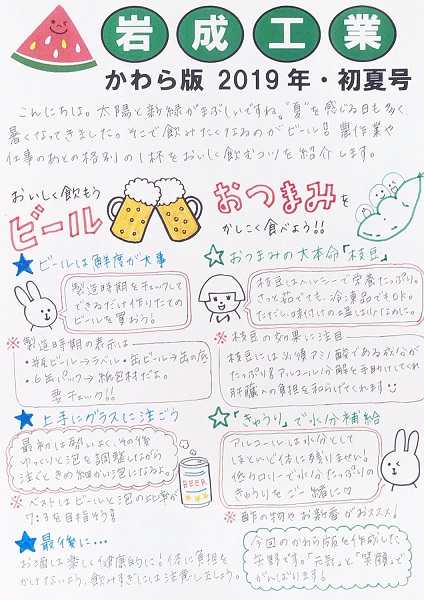 岩成工業
かわら版 2019年・初夏号
こんにちは。太陽と新緑がまぶしいですね。"夏"を感じる日も多く、
暑くなってきました。そこで飲みたくなるのがビール!農作業や
仕事のあとの格別の1杯をおいしく飲むコツを紹介します。
おいしく飲もう
ビール
おつまみを
かしこく食べよう!!
★ビールは鮮度が大事
製造時期をチェックして
できるだけ作りたての
ビールを買おう!
※製造時期の表示は
・瓶ビール→ラベル・缶ビール→缶の底
・6缶パック→紙包材だよ。
要チェック!!
★上手にグラスに注ごう
最初は勢いよく、その後
ゆっくりと泡を調整しながら
注ぐときめ細かい泡になるよ。
BEER
※ベストはビールと泡の比率が
7:3を目指そう!
★最後に…
お酒は楽しく健康的に!体に負担を
かけないよう、飲みすぎには注意しましょう。
☆おつまみの大本命「枝豆」
枝豆はヘルシーで栄養たっぷり。
さっと茹でても、冷凍品でもOK。
ただし味付けの塩は少なめに。
※枝豆の効果に注目
枝豆には必須アミノ酸である成分が
たっぷり!アルコール分解を手助けしてくれ
肝臓への負担を和らげてくれます
☆「きゅうり」で水分補給
アルコールは水分として
ほとんど体に残りません!
低カロリーで水分たっぷりの
きゅうりをご一緒に♡
※酢の物やお新香がおススメ!
今回のかわら版を作成した
矢野です。「元気」と「笑顔」で
がんばります!